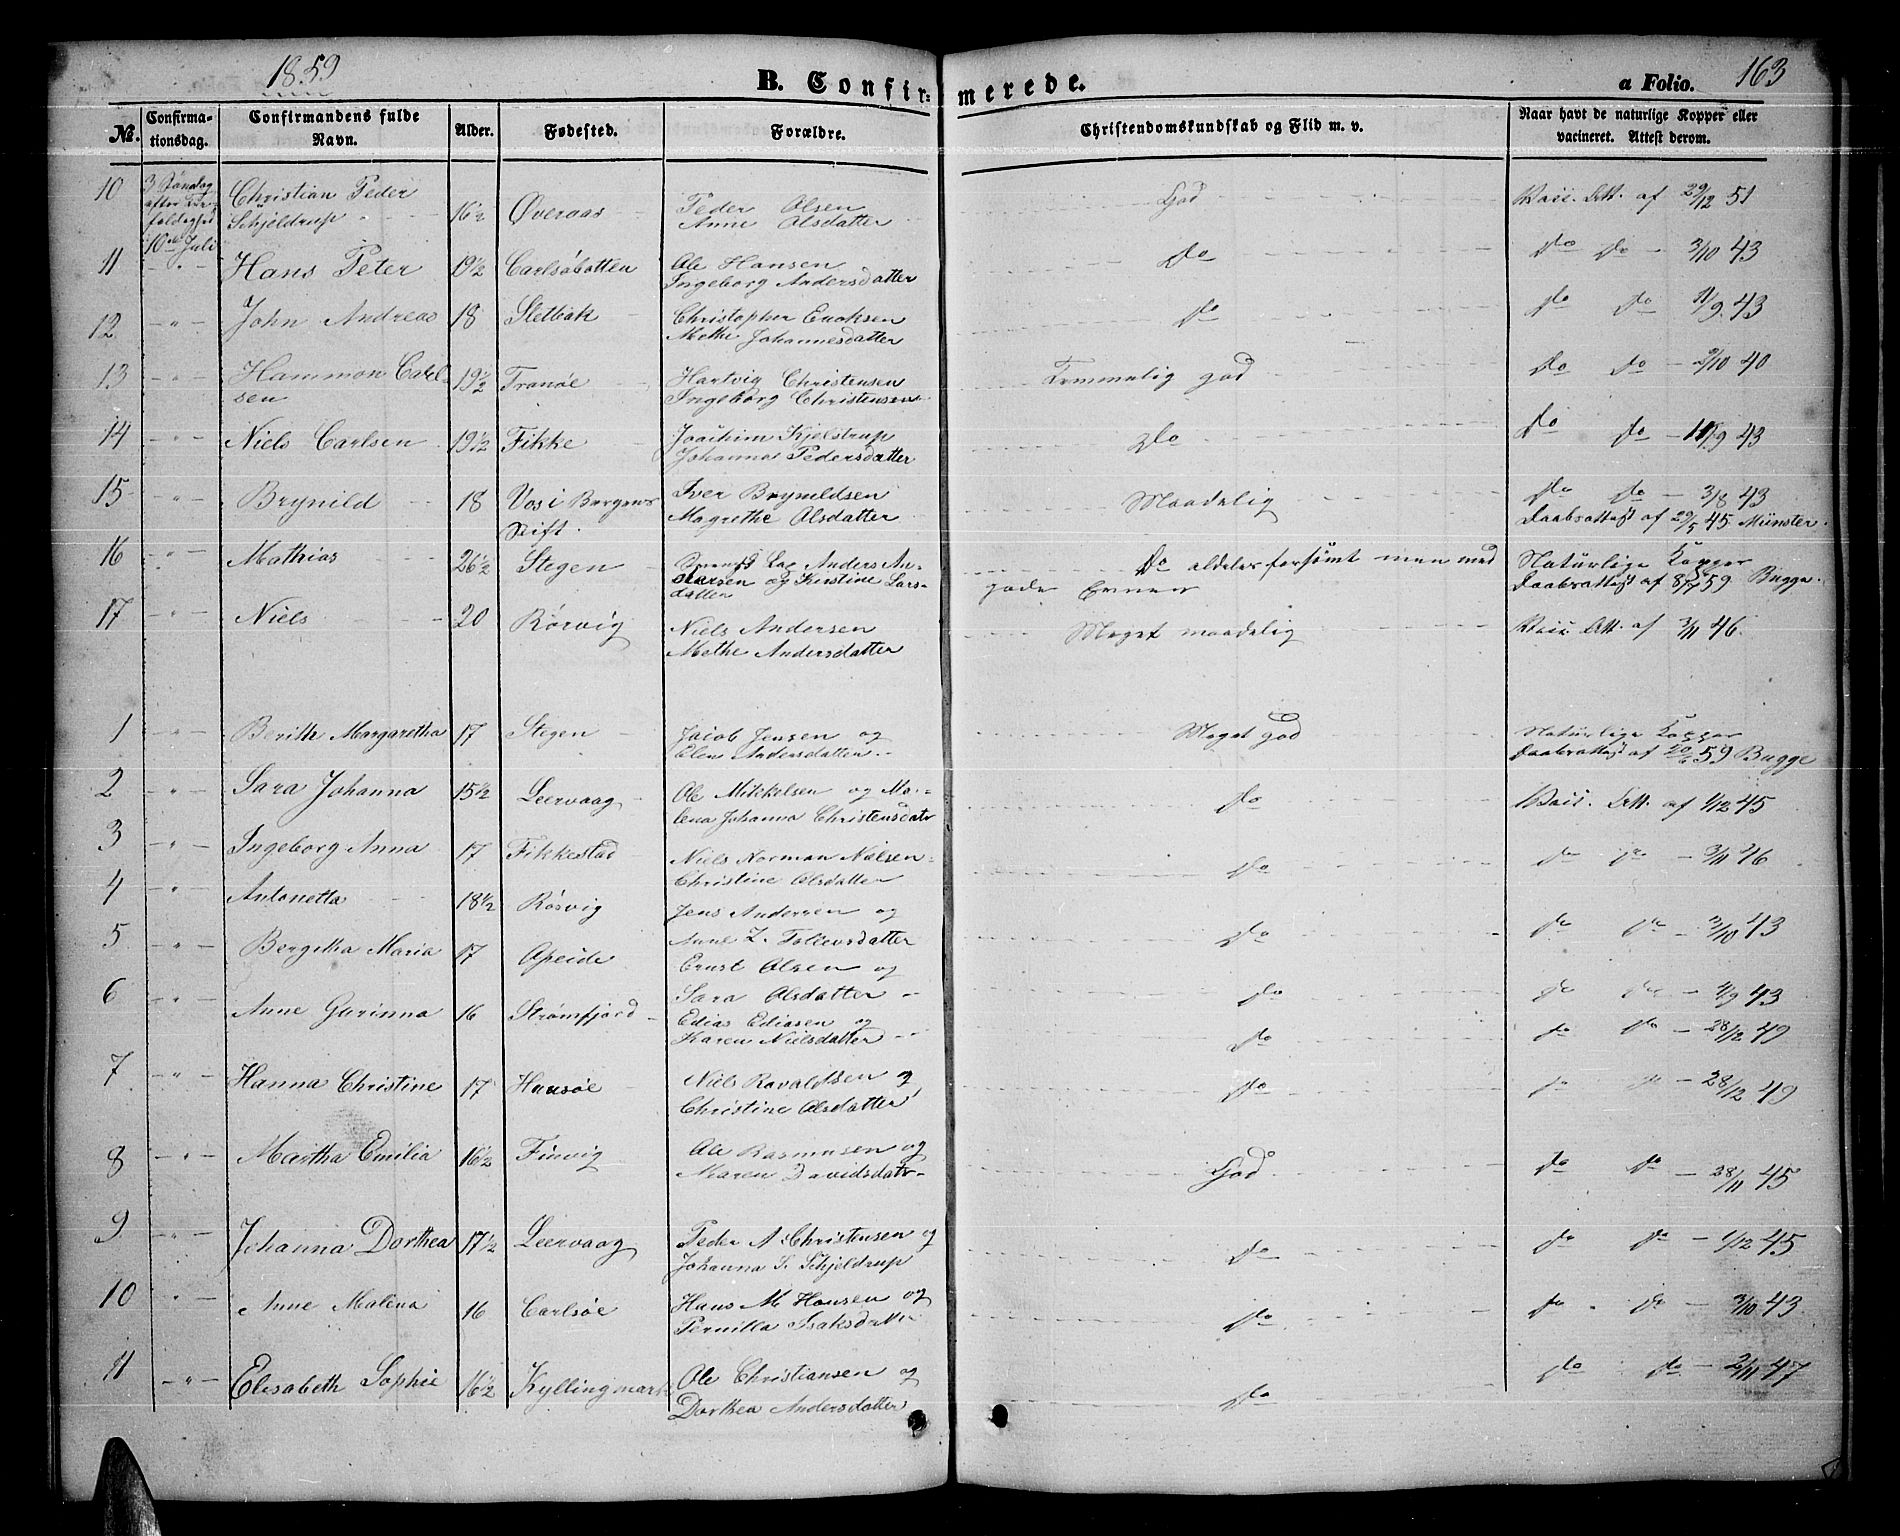 1859
B. Confirmerede.
a Folio. 163
No. Confirmationsdag. Confirmandens fulde Navn. Alder. Fødested. Forældre. Christendomskundskab og Flid m. v. Naar havt de naturlige Kopper eller vacineret. Attest derom.
10 3 Søndag after Tre- Christian Peder
foldighed Schjeldrup 16½ Øveraas Peder Olsen God Vacc. Att. af 29/12 51
10de Juli Anne Olsdatter
11 " Hans Peter 19½ Carlsöbotten Ole Hansen Do Do Do 3/10 43
Ingeborg Andersdatter
12 " John Andreas 18 Sletbak Christopher Enoksen Do Do Do 11/9 43
Methe Johannesdatter
13 " Hammon Carl- 19½ Tranöe Hartvig Christensen Temmelig god Do Do 2/10 40
sen Ingeborg Christensen
14 " Niels Carlsen 19½ Fikke Joachim Kjelstrup Do Do Do 11/9 43
Johanna Pedersdatter
15 " Brynild 18 Vos i Bergens Iver Brynildsen Maadelig Do Do 3/8 43
Stift. Magrethe Olsdatter Daabsattest af 29/5 45 Münster.
16 " Mathias 26½ Stegen Lap Anders An- Do aldeles forsømt men med Naturlige Kopper
dersen og Kirstine Lars- gode Evner Daabsattest af 59 Bugge.
datter
17 " Niels 20 Rörvig Niels Andersen Meget maadelig Vacc. Att. af 3/11 46.
Methe Andersdatter
1 " Berith Margaretha 17 Stegen Jacob Jensen og Meget god Naturlige Kopper
Elen Andersdatter Daabsattest af 20/6 59 Bugge
2 " Sara Johanna 15½ Leervaag Ole Mikkelsen og Ma- Do Vacc. Att. af 1/12 45
lena Johanna Christensdatr
3 " Ingeborg Anna 17 Fikkestad Niels Norman Nielsen Do Do Do 3/11 46
Christine Olsdatter
4 " Antonetta 18½ Rösvig Jens Andersen og Do Do Do 3/10 43
Anne Z. Tollevsdatter
5 " Bergitha Maria 17 Apeide Ernst Olsen og Do Do Do 11/9 43
Sara Olsdatter
6 " Anne Gurinna 16 Strömfjord Edias Ediasen og Do Do Do 28/12 49
Karen Nielsdatter
7 " Hanna Christine 17 Hansöe Niels Ravaldsen og Do Do Do 28/12 49
Christine Olsdatter
8 " Martha Emilia 16½ Finvig Ole Rasmusen og God Do Do 28/11 45
Maren Davidsdatr
9 " Johanna Dorthea 17½ Leervaag Peder A Christensen og Do Do Do 1/12 45
Johanna S. Schjeldrup
10 " Anne Malena 16 Carlsöe Hans M Hansen og Do Do Do 3/10 43
Pernilla Isaksdatter
11 " Elisabeth Sophie 16½ Kyllingmark Ole Christiansen og Do Do Do 2/11 47
Dorthea Andersdatter